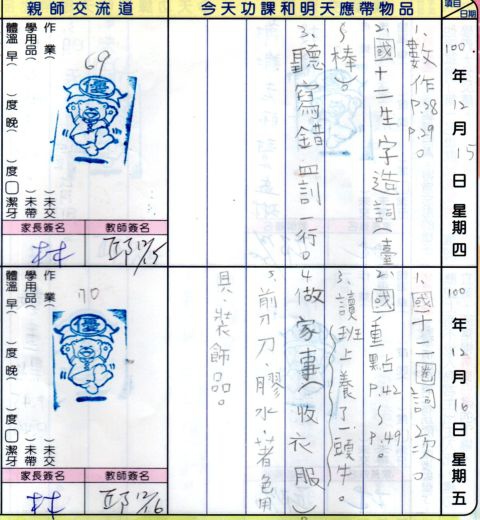 項目
日期
今天功課和明天應帶物品
親師交流道
100年12月15日星期四
1、數作P.28 P.29。
2、國十二生字造詞(臺
~棒)。
3、聽寫錯四訓一行。
作業( )未交
學用品( )未帶
體溫早( )度晚( )度
潔牙
69
優
教師簽名
家長簽名
邱12/15
林
100年12月16日星期五
1、國十二圈詞2次。
2、國重點P.42~P.49。
3、讀班上養了一頭牛。
4、做家事(收衣服)
5、剪刀、膠水、著色用
具、裝飾品。
作業( )未交
學用品( )未帶
體溫早( )度晚( )度
潔牙
70
優
教師簽名
家長簽名
邱12/16
林